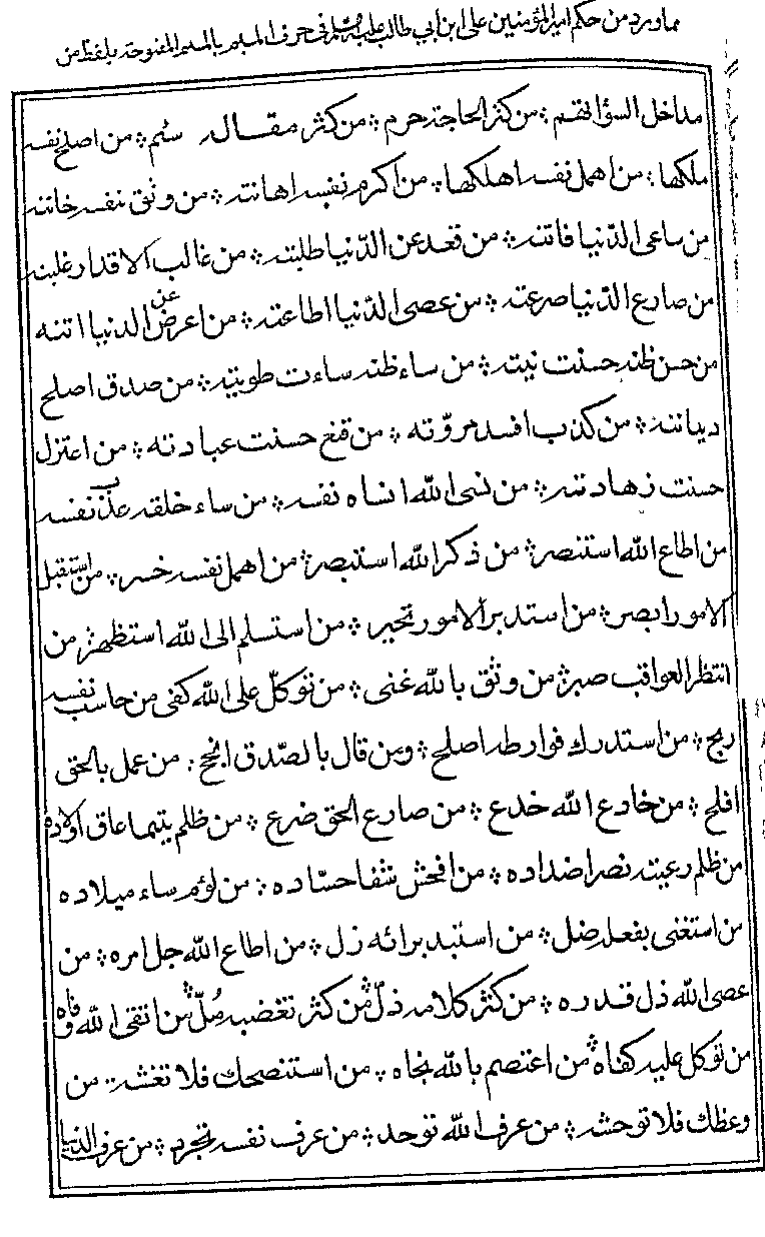 مما ورد من حكم امير المؤمنين على ابن ابي طالب عليه السلم فى حرف الميم بالميم المفتوحة بلفظ من
مداخل السؤاتهم ؞ من كثر الحاجة حرم ؞ من كثر مقاله سئم ؞ من اصلح نفسه
ملكها ؞ من اهمل نفسه اهلكها ؞ من اكرم نفسه اهانته ؞ من وثق بنفسه خانته
من ساعى الدّنيا فاتته ؞ من قعد عن الدّنيا طلبته ؞ من غالب الاقدار غلبته
من صارع الدّنيا صرعته ؞ من عصى الدّنيا اطاعته ؞ من اعرض عن الدنيا اتته
من حسن ظنه حسنت نيته ؞ من ساء ظنه ساءت طويته ؞ من صدق اصلح
ديانته ؞ من كذب افسد مروّته ؞ من قنع حسنت عبادته ؞ من اعتزل
حسنت زهادته ؞ من نسى الله انساه نفسه ؞ من ساء خلقه عذب نفسه
من اطاع الله استنصر ؞ من ذكر الله استبصر ؞ من اهمل نفسه خسر ؞ من استقبل
الامور ابصر ؞ من استدبر الامور تحير ؞ من استسلم الى الله استظهر ؞ من
انتظر العواقب صبر ؞ من وثق بالله غنى ؞ من توكّل على الله كفى من حاسب نفسه
ربح ؞ من استدرك فوارطه اصلح ؞ ومن قال بالصّدق انجح ؞ من عمل بالحق
افلح ؞ من خادع الله خدع ؞ من صارع الحق ضرع ؞ من ظلم يتيما عاق اولاده
من ظلم رعيته نصر اضداده ؞ من افحش شفا حسّاده ؞ من لؤم ساء ميلاده
من استغنى بفعله ضل ؞ من استبد برائه زل ؞ من اطاع الله جل امره ؞ من
عصى الله ذل قدره ؞ من كثر كلامه ذلّ ؞ من كثر تغضبه مُلّ ؞ من اتقى الله وقاه
من توكل عليه كفاه ؞ من اعتصم بالله نجاه ؞ من استنصحك فلا تغشه ؞ من
وعظك فلا توحشه ؞ من عرف الله توحد ؞ من عرف نفسه تجرد ؞ من عرف الدنيا